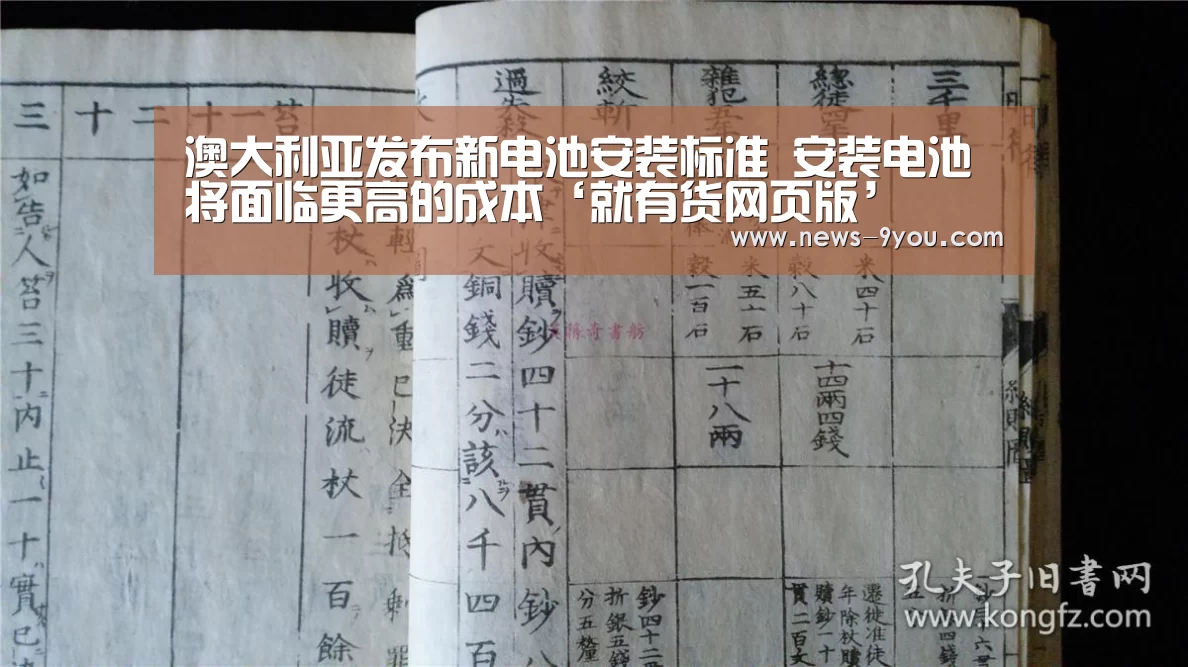 澳大利亚发布新电池安装标准 安装电池
将面临更高的成本‘就有货网页版’
www.news-9you.com
三千里
總徒四年
米四十石
穀八十石
十四兩四錢
遷徙准徒
年除杖贖
贖鈔一十
貫二百文
雜犯五年
米五十石
穀一百石
一十八兩
絞斬
鈔四十二
折銀五錢
分五釐
過失殺
收贖鈔四十二貫內鈔八
文銅錢二分該八千四百
輕為重已決全抵剩罪
杖收贖徒流杖一百餘
笞一十
二十
三
如告人笞三十內止一十實已
孔夫子旧書网
www.kongfz.com